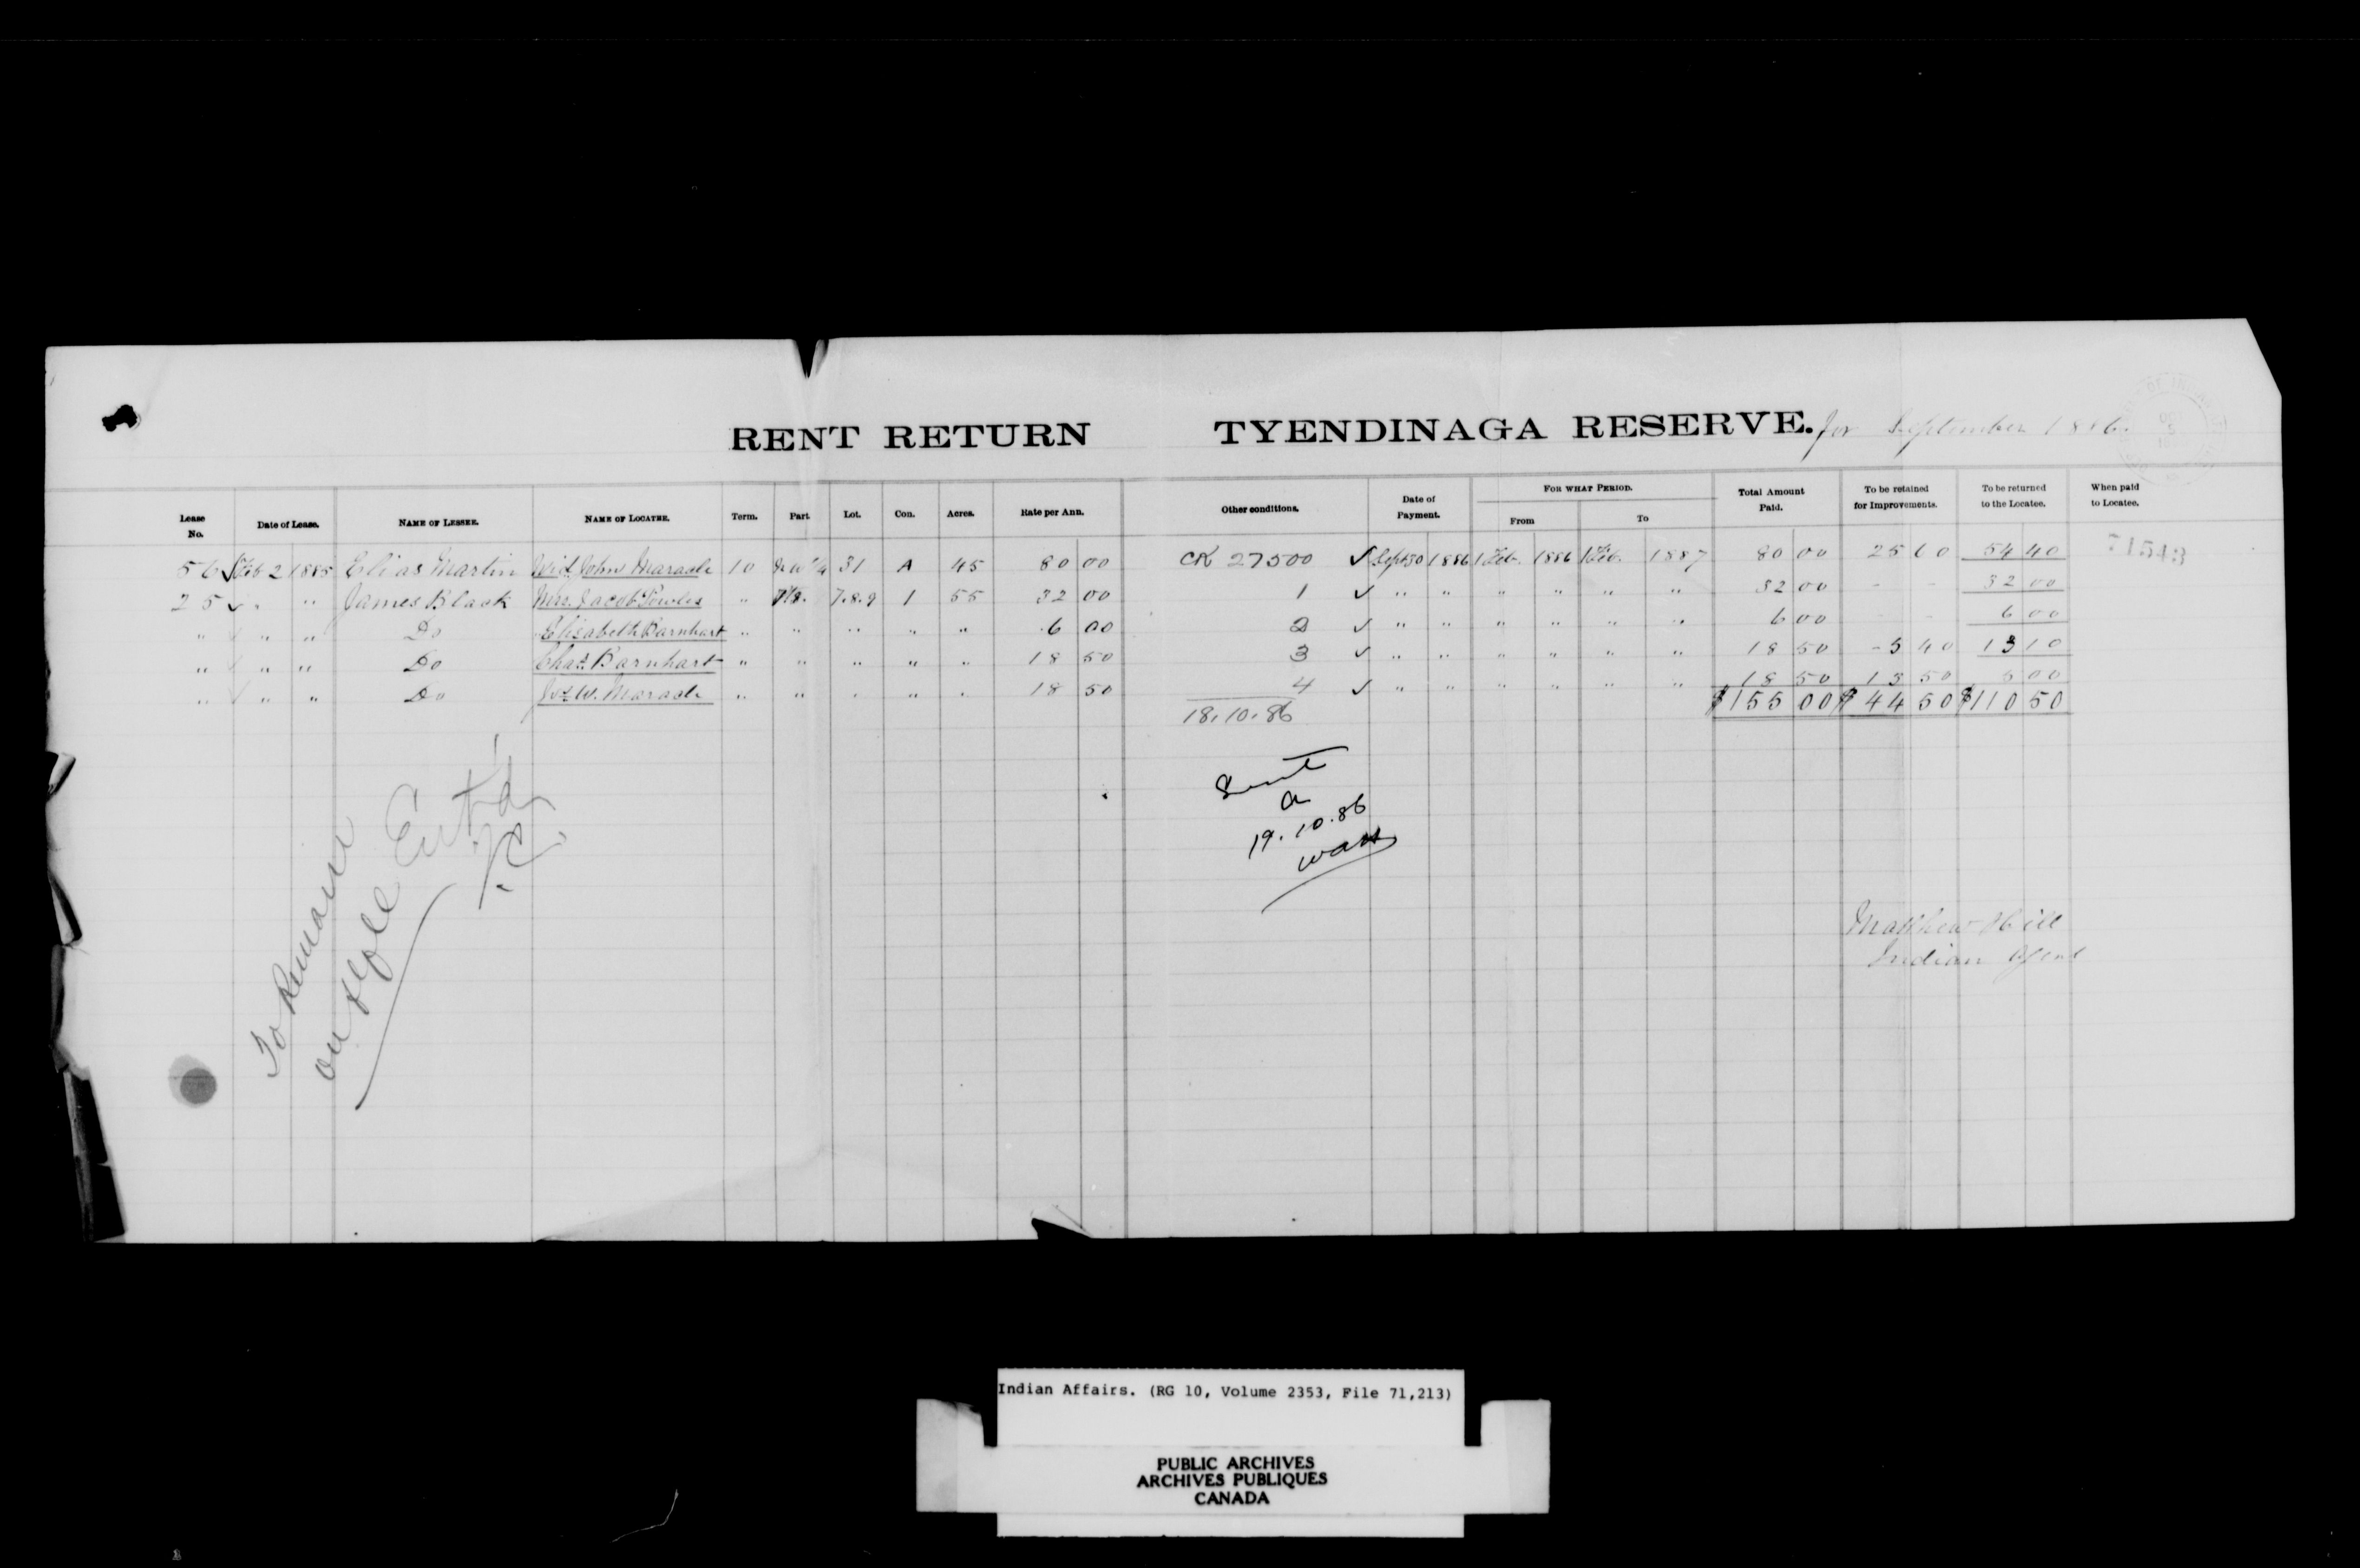 RENT RETURN TYENDINAGA RESERVE. for September 1886.
Lease No. Date of Lease. NAME OF LESSEE. NAME OF LOCATEE. Term. Part. Lot. Con. Acres. Rate per Ann. Other conditions. Date of Payment. FOR WHAT PERIOD. From To Total Amount Paid. To be retained for Improvements. To be returned to the Locatee. When paid to Locatee.
56 ✓ Feb 2 1885 Elias Martin Wid. John Maracle 10 31 A 45 80 00 CK 27500 ✓ Sept 30 1886 1 Feb. 1886 1 Feb. 1887 80 00 25 60 54 40 71543
25 ✓ " " James Black Mrs. Jacob Powles " 7.8.9 1 55 32 00 1 ✓ " " " " " " 32 00 - - 32 00
" ✓ " " Do Elisabeth Barnhart " " " " " 6 00 2 ✓ " " " " " " 6 00 - - 6 00
" ✓ " " Do Chas. Barnhart " " " " " 18 50 3 ✓ " " " " " " 18 50 - 5 40 13 10
" ✓ " " Do Jos. W. Maracle " " " " " 18 50 4 ✓ " " " " " " 18 50 13 50 5 00
18.10.86 $155 00 $44 50 $110 50
Sent
a
19.10.86
To Remain
on file
Ent'd
Matthew Hill
Indian Agent
Indian Affairs. (RG 10, Volume 2353, File 71,213)
PUBLIC ARCHIVES
ARCHIVES PUBLIQUES
CANADA